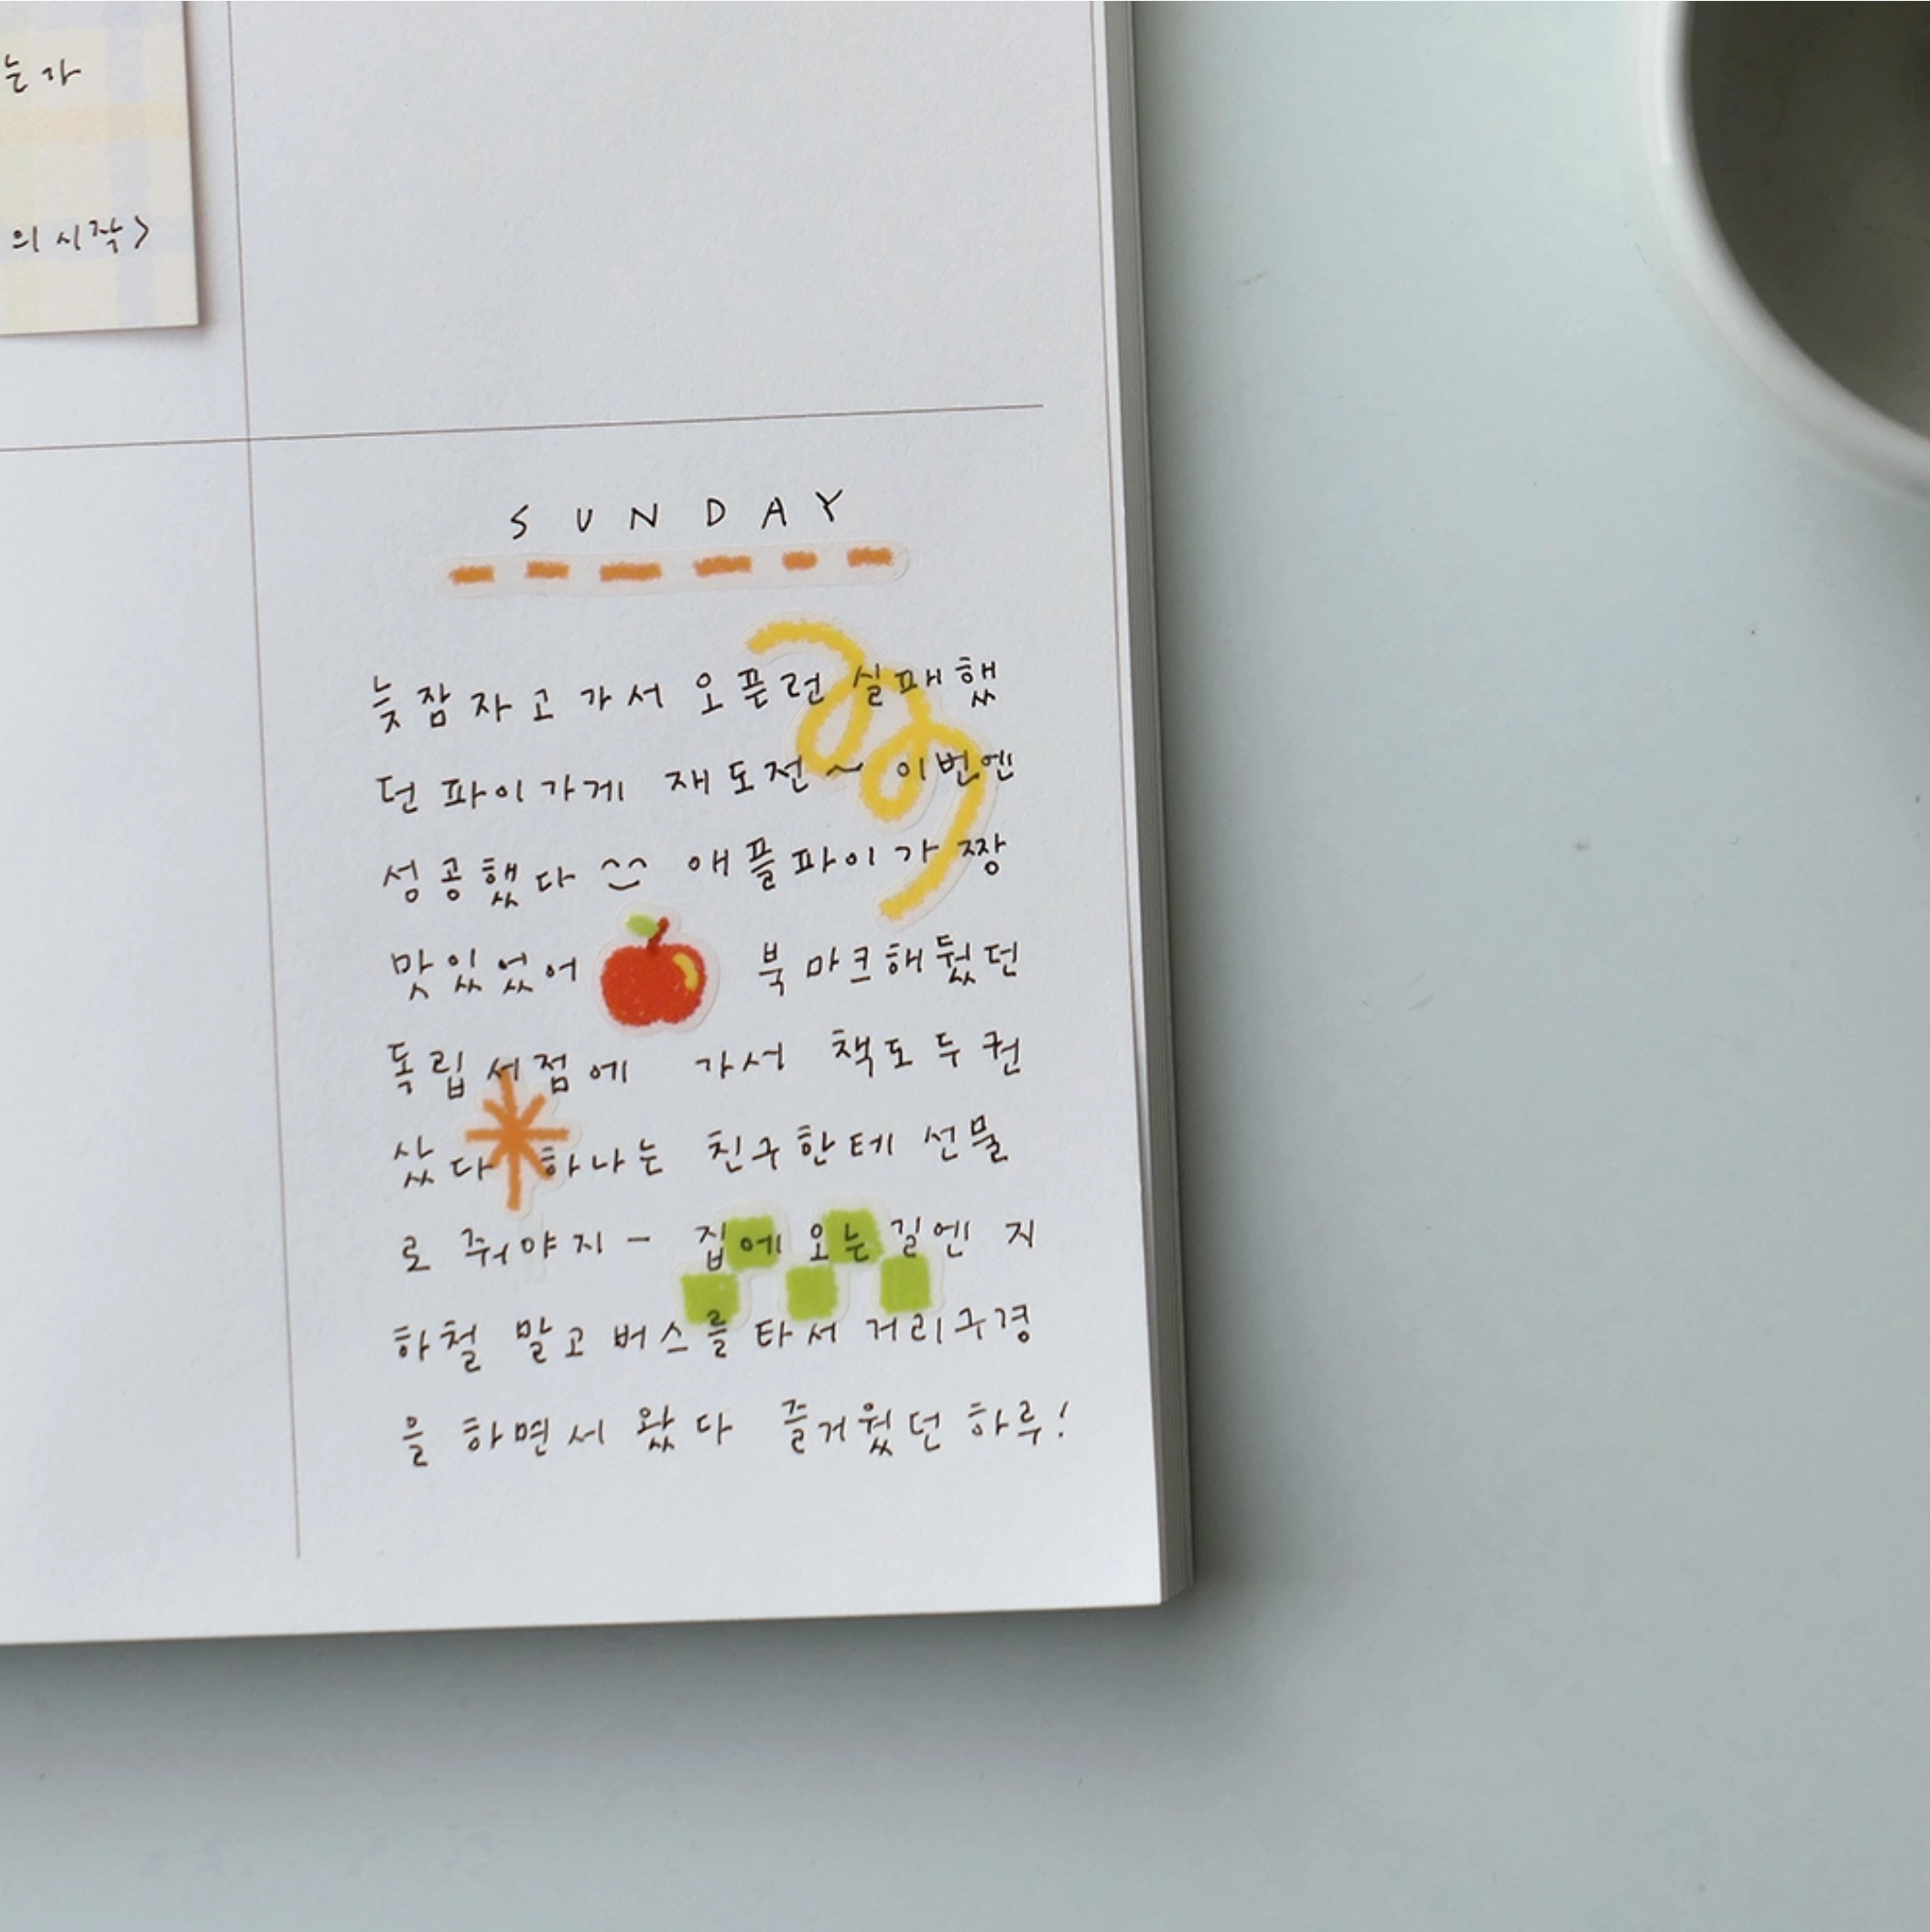 는가
의시작>
SUNDAY
늦잠자고가서 오픈런 실패했
던 파이가게 재도전~ 이번엔
성공했다 ^^ 애플파이가 짱
맛있었어 북마크해뒀던
독립서점에 가서 책도 두권
샀다 하나는 친구한테 선물
로 줘야지- 집에 오는길엔 지
하철 말고 버스를 타서 거리구경
을 하면서 왔다 즐거웠던 하루!